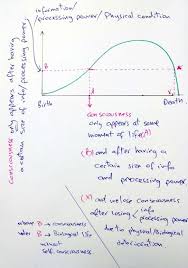 information/
processing power/ Physical condition
consciousness
only appears after having
a certain size of info/
processing power
B
A
X
Birth
Death
consciousness
only appears at some
moment of life (A)
(B) and after having a
certain size of info
and processing power
(X) and we lose consciousness
after losing info
processing power
due to physical/Biological
deterioration
above B → consciousness
under B → Biological life
without
self consciousness